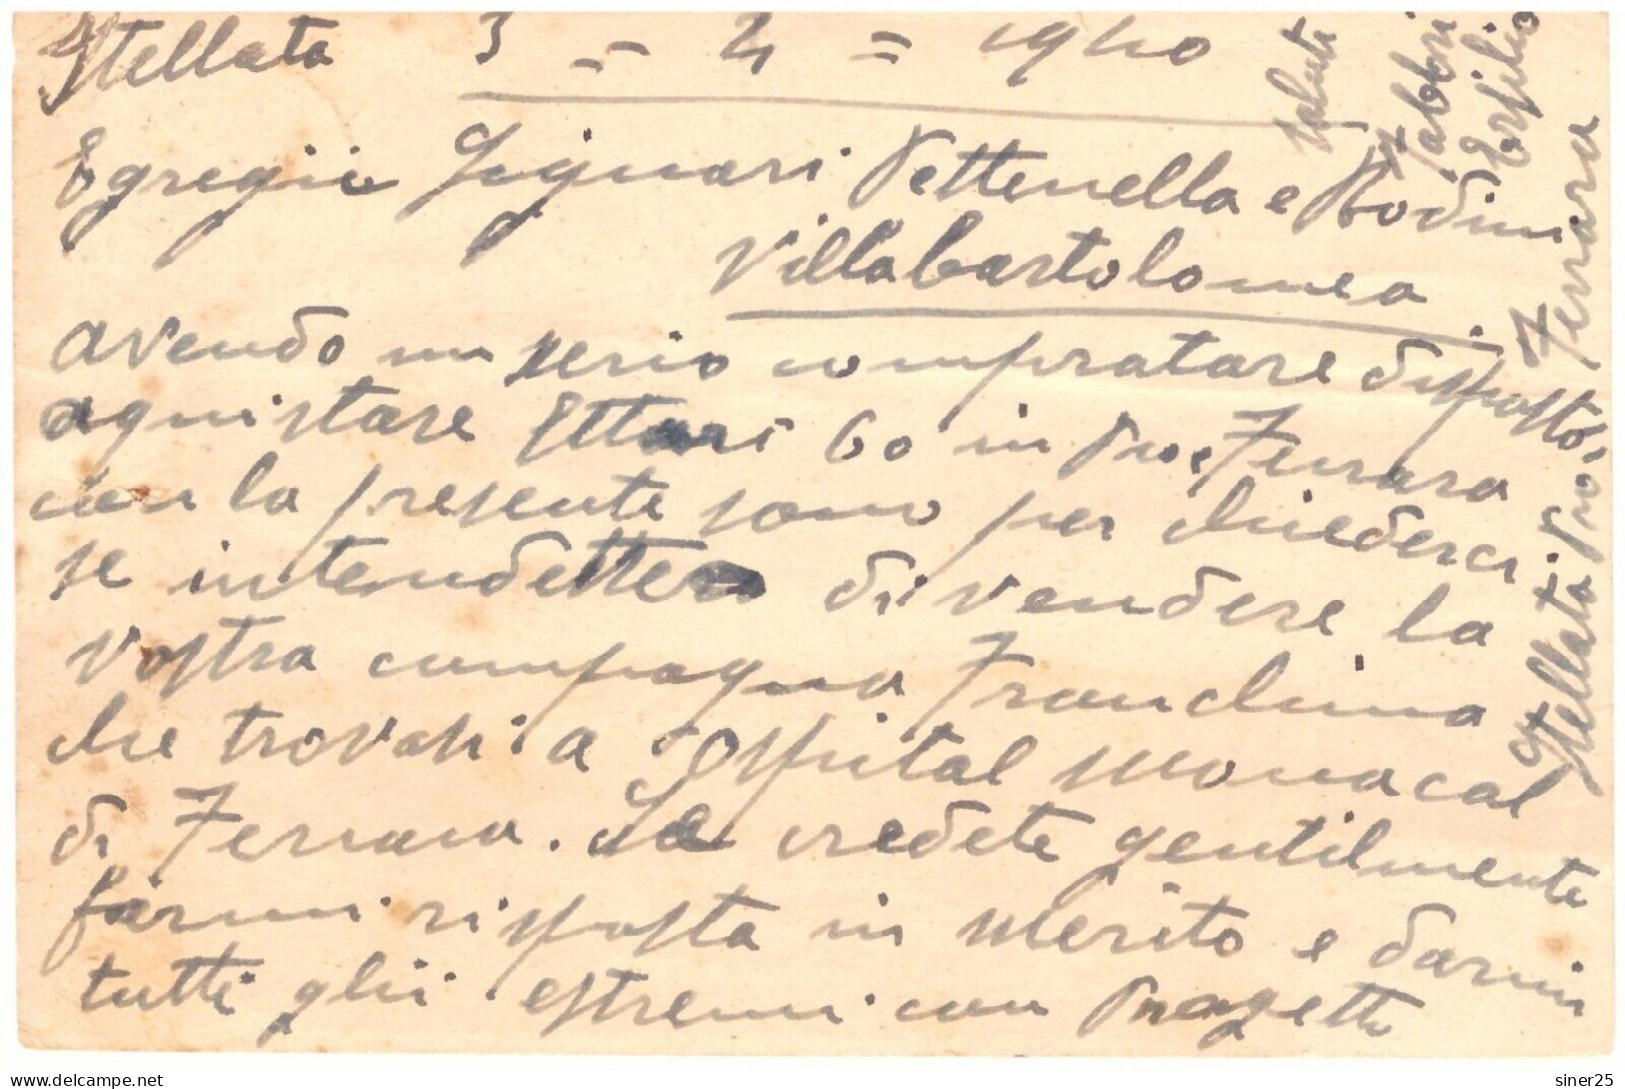 Stellata 3 - 4 = 1940
Egregii Signori Pettenella e Bodini
Villabartolomea
Avendo un serio compratore disposto,
aquistare Ettari 60 in Prov. Ferrara
con la presente sono per chiederci
se intendette di vendere la
vostra campagna Franchina
che trovasi a Ospital Monacal
di Ferrara. Se credete gentilmente
farmi risposta in merito e darmi
tutti glii estremi con Progetto
Saluti
Fabbri
Ersilio
Stellata Pro. Ferrara
siner25